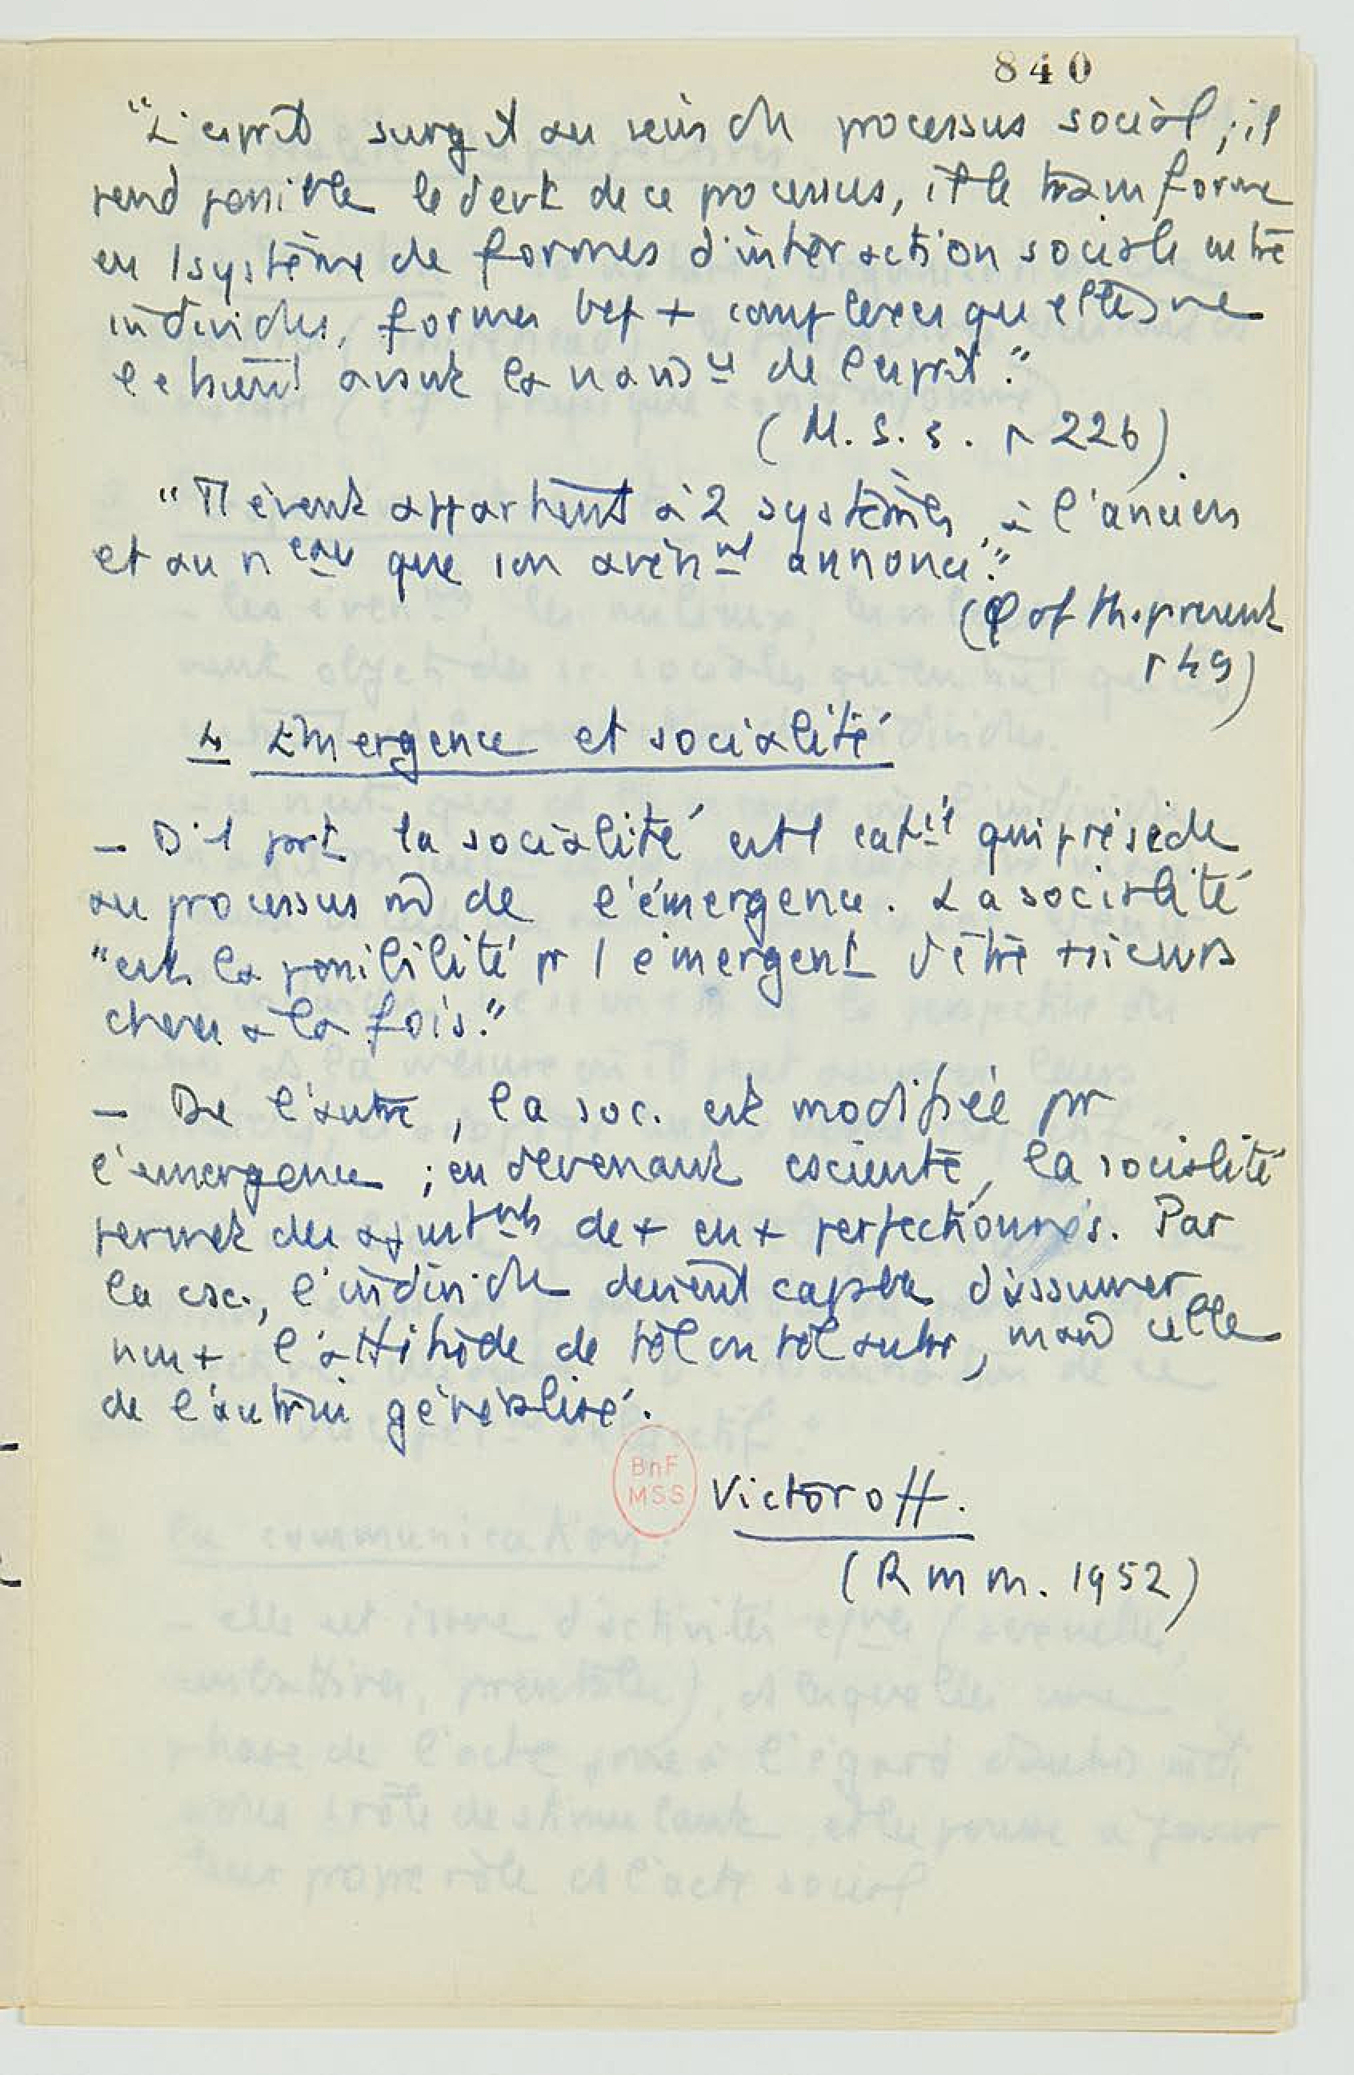 840
"L'esprit surgit au sein du processus social ; il
rend possible le devt de ce processus, et le transforme
en 1 système de formes d'interaction sociale entre
individus, formes bcp + complexes qu'elles ne
l'étaient avant la naiss ce de l'esprit."
(M. S. S. p 226)
" Tt évent appartient à 2 systèmes, à l'ancien
et au n eau que son avèn nt annonce."
(φ of th. present
p 49)
4 Émergence et socialité
– D'1 part la socialité est 1 qui préside
au processus de l'émergence. La socialité
"est la possibilité pr l'émergent d'être +sieurs
choses à la fois."
– De l'autre, la soc. est modifiée pr
l'émergence ; en devenant csciente, la socialité
permet des ajust nts de + en + perfectionnés. Par
la csc., l'individu devient capble d'assumer
non + l'attitude de tel ou tel autre, mais celle
de l'autrui généralisé.
BnF
MSS
Victoroff.
(R m m. 1952)